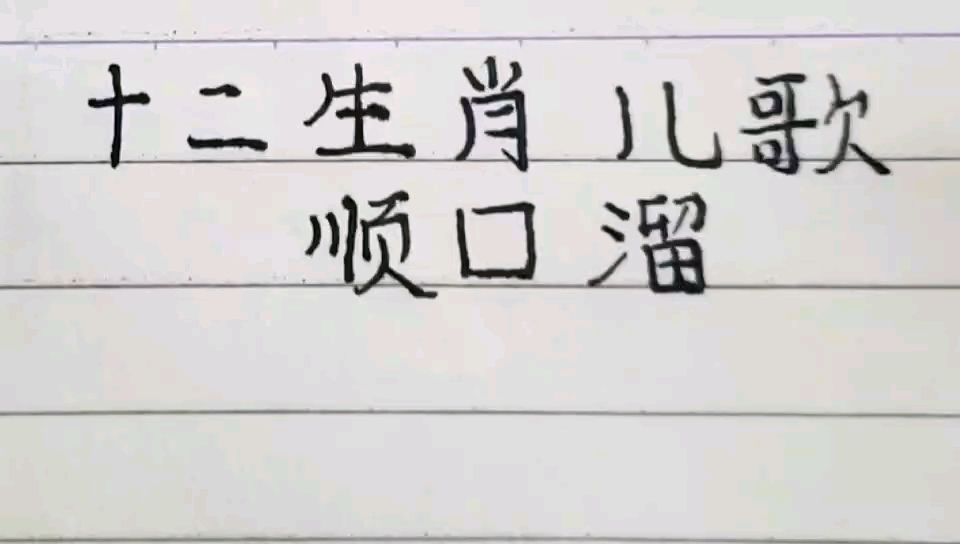 十二生肖儿歌
顺口溜